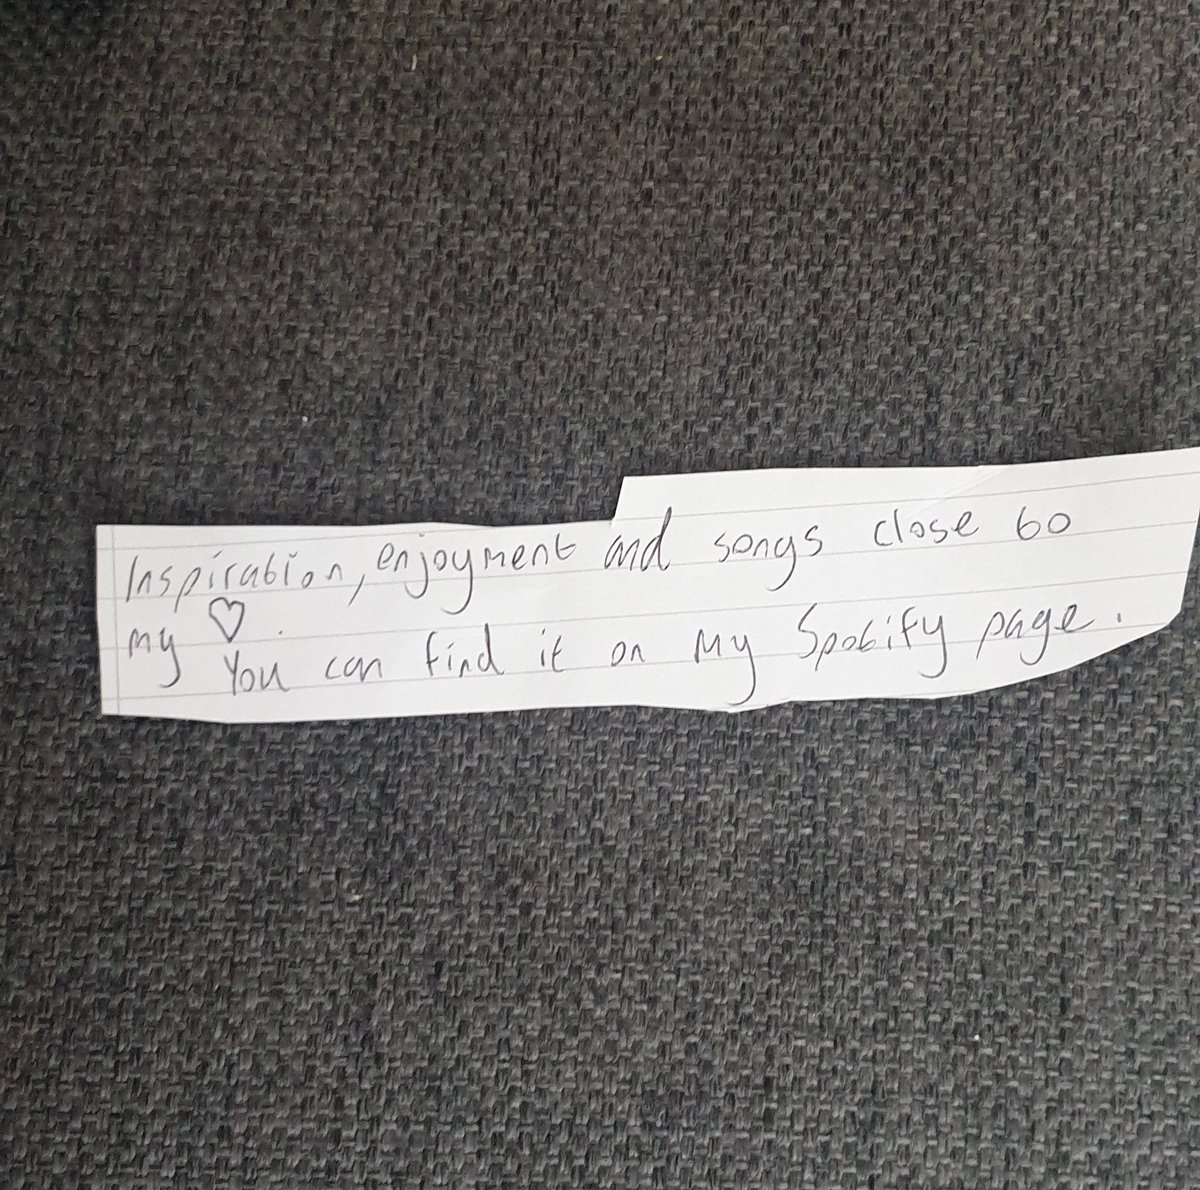 Inspiration, enjoyment and songs close to
my ♡.
You can find it on my Spotify page.